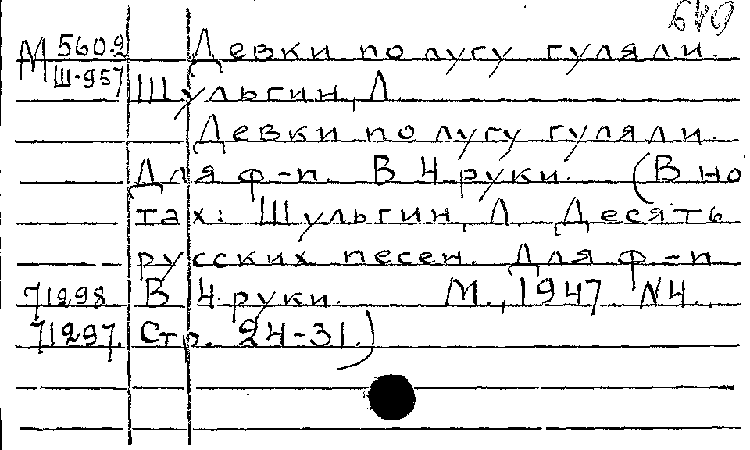 649
М 560.2 Девки по лугу гуляли.
Ш-957 Шульгин, Л.
Девки по лугу гуляли.
Для ф-п. В 4 руки. (В но
тах: Шульгин, Л. Десять
русских песен. Для ф-п
71298 В 4 руки. М., 1947 N4.
71297. Стр. 24-31.)